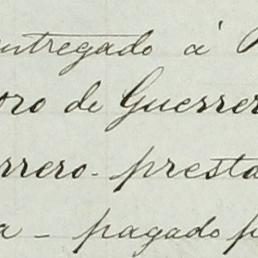 entregado á
oro de Guerrer
rrero - presta
a - pagado